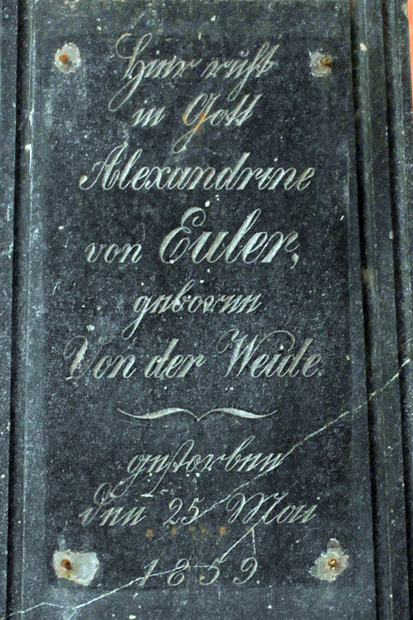 Hier ruht
in Gott
Alexandrine
von Euler,
geborne
Von der Weide.
gestorben
den 25 Mai
1859.